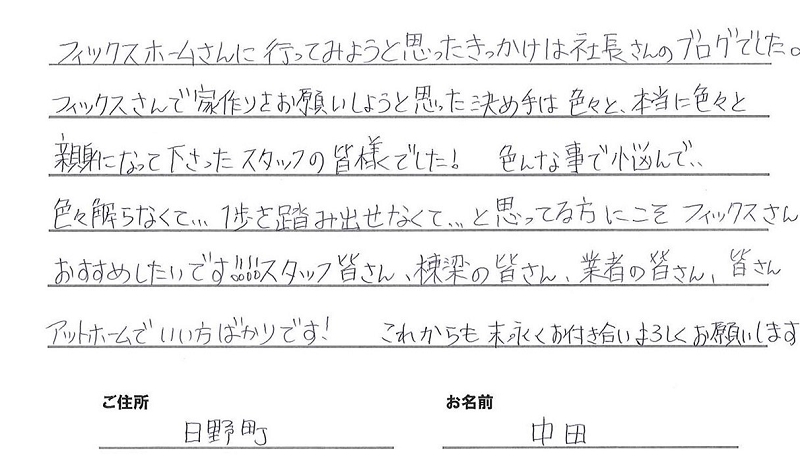 フィックスホームさんに行ってみようと思ったきっかけは社長さんのブログでした。
フィックスさんで家作りをお願いしようと思った決め手は色々と、本当に色々と
親身になって下さったスタッフの皆様でした! 色んな事で悩んで..
色々解らなくて... 1歩を踏み出せなくて... と思ってる方にこそ フィックスさん
おすすめしたいです!!!!スタッフ皆さん、棟梁の皆さん、業者の皆さん、皆さん
アットホームでいい方ばかりです! これからも末永くお付き合いよろしくお願いします
ご住所 お名前
日野町 中田